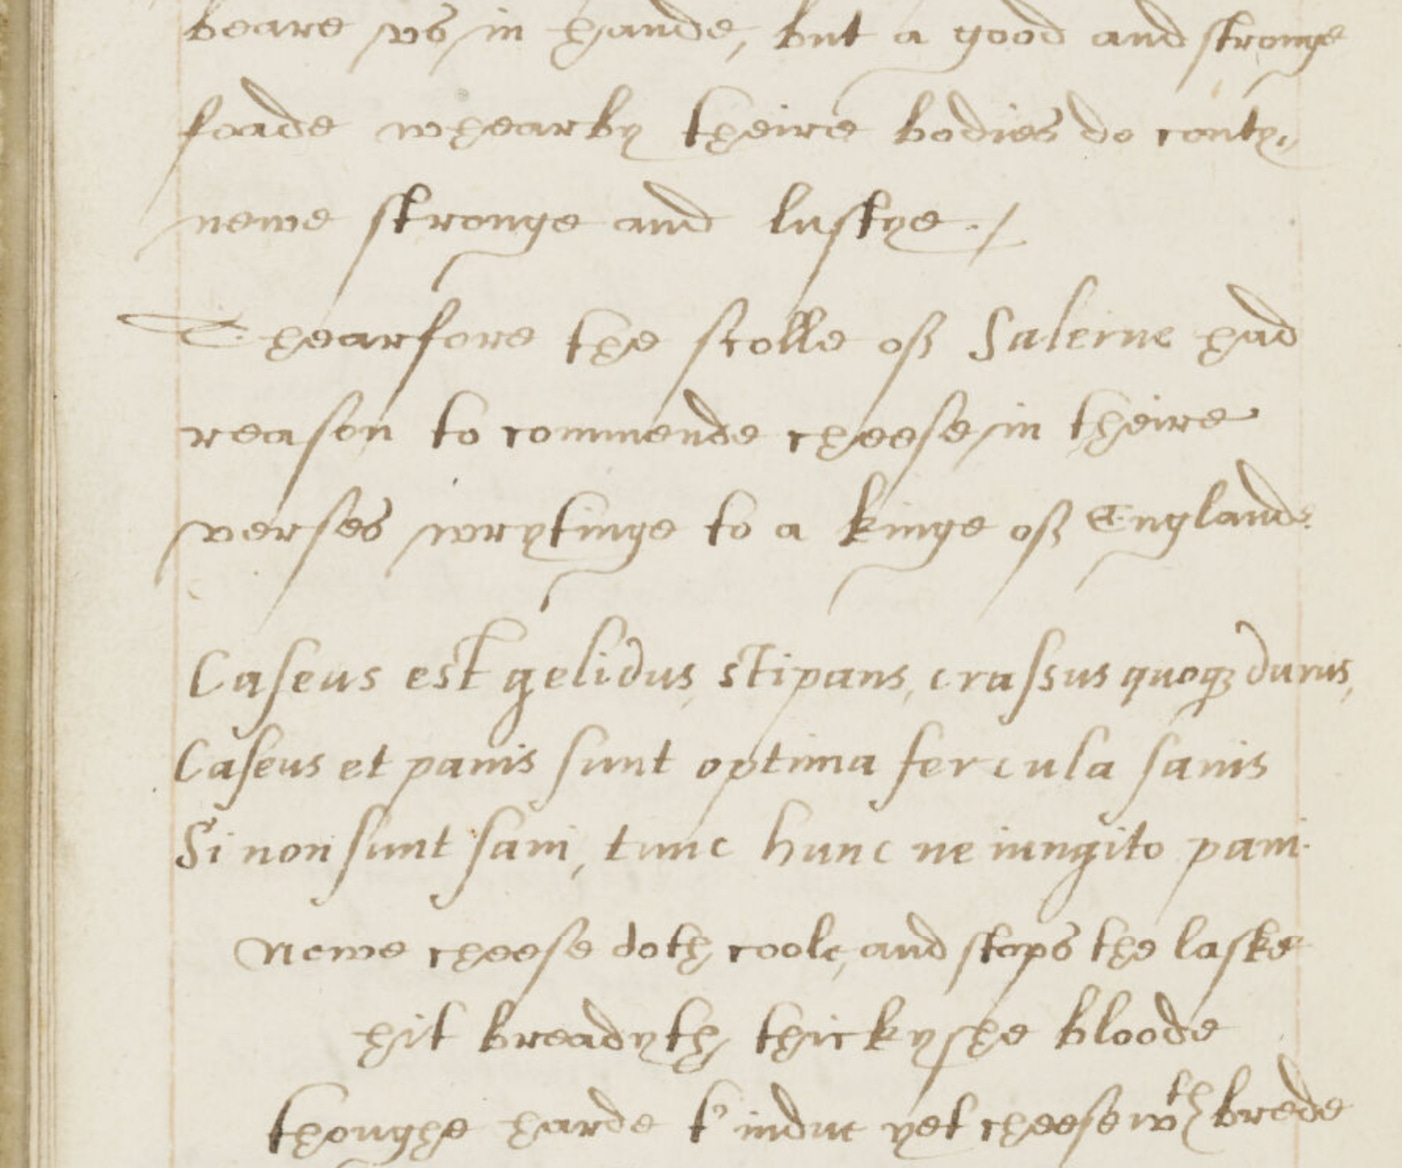 beare vs in hande, but a good and stronge
foade whearby theire bodies do conty„
newe stronge and lustye ./
Thearfore the scolle off Salerne had
reason to commende cheese in theire
verses wrytinge to a kinge off Englande
Caseus est gelidus, stipans, crassus quoqꝫ durus,
Caseus et panis sunt optima fercula sanis
Si non sunt sani, tunc hunc ne iungito pani.
Newe cheese doth coole, and stops the laske
hit breadyth thickyshe bloode
thoughe harde t' indue yet cheese wth brede